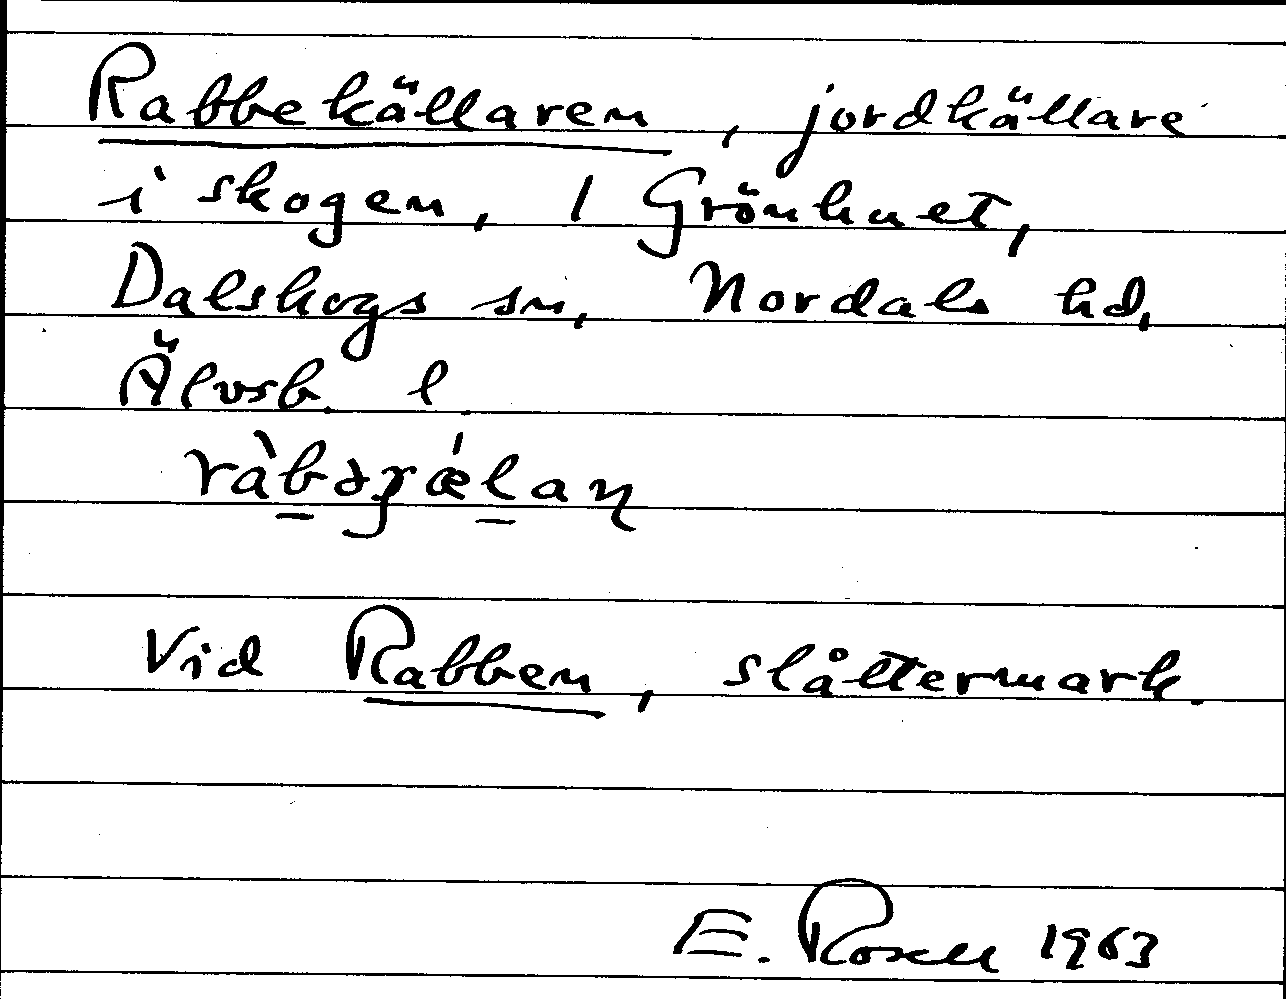 Rabbekällaren, jordkällare
i skogen, 1 Grönhuet,
Dalskogs sn, Nordals hd,
Älvsb. l.
Vid Rabben, slåttermark.
E. Rosell 1963